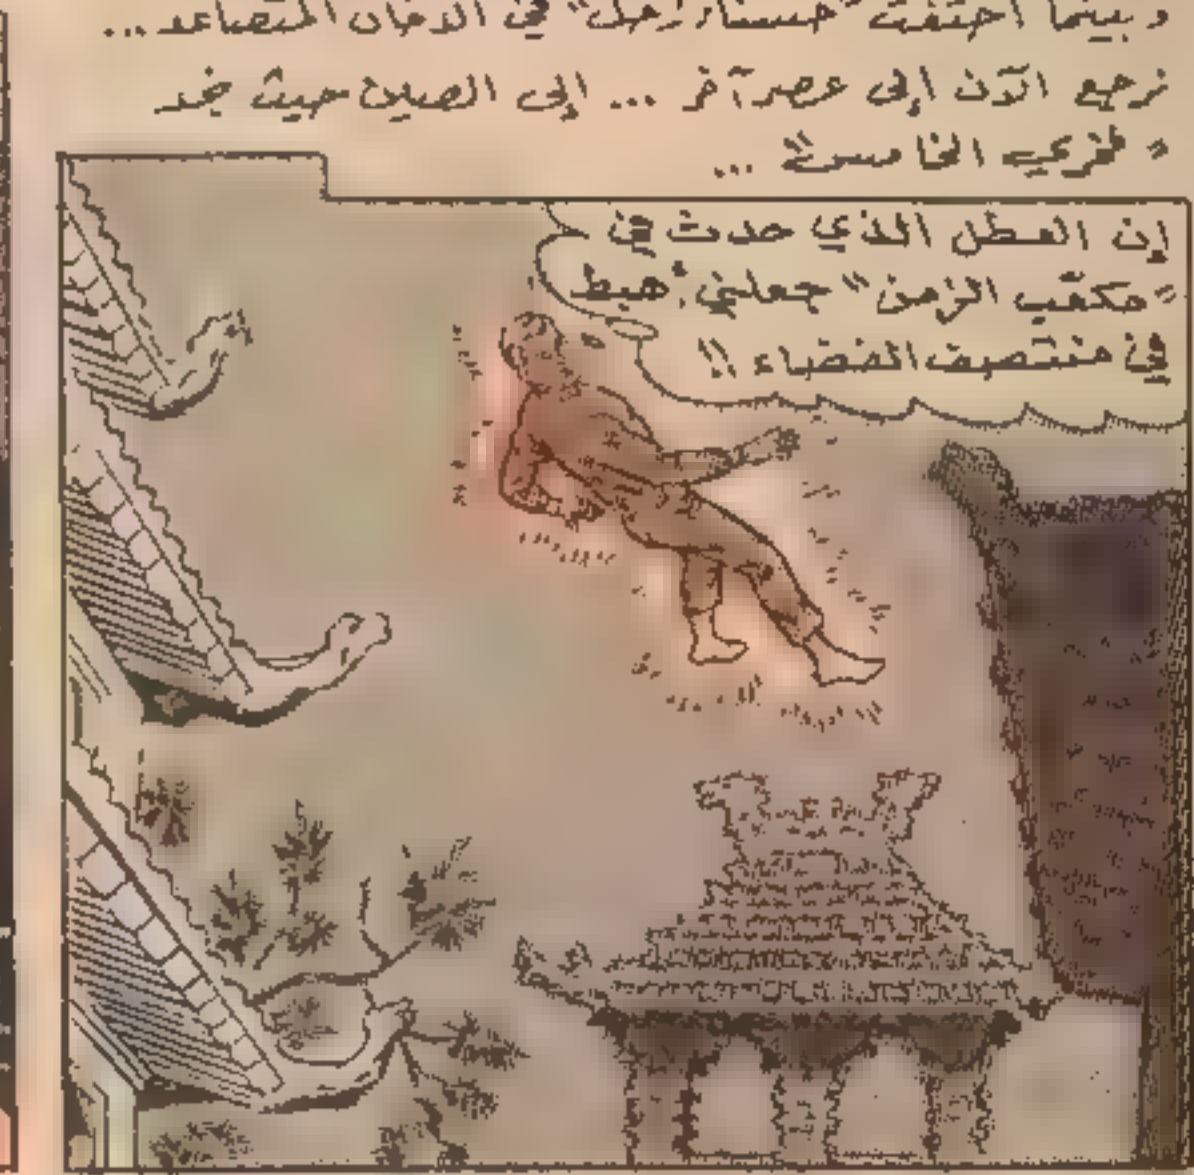 وبينما اختفت "حسناء زحل" في الدخان المتصاعد...
نرجع الآن إلى عصر آخر ... إلى الصين حيث نجد
"فخري الخامس" ...
إن العطل الذي حدث في
"مكعّب الزمن" جعلني أهبط
في منتصف الفضاء !!